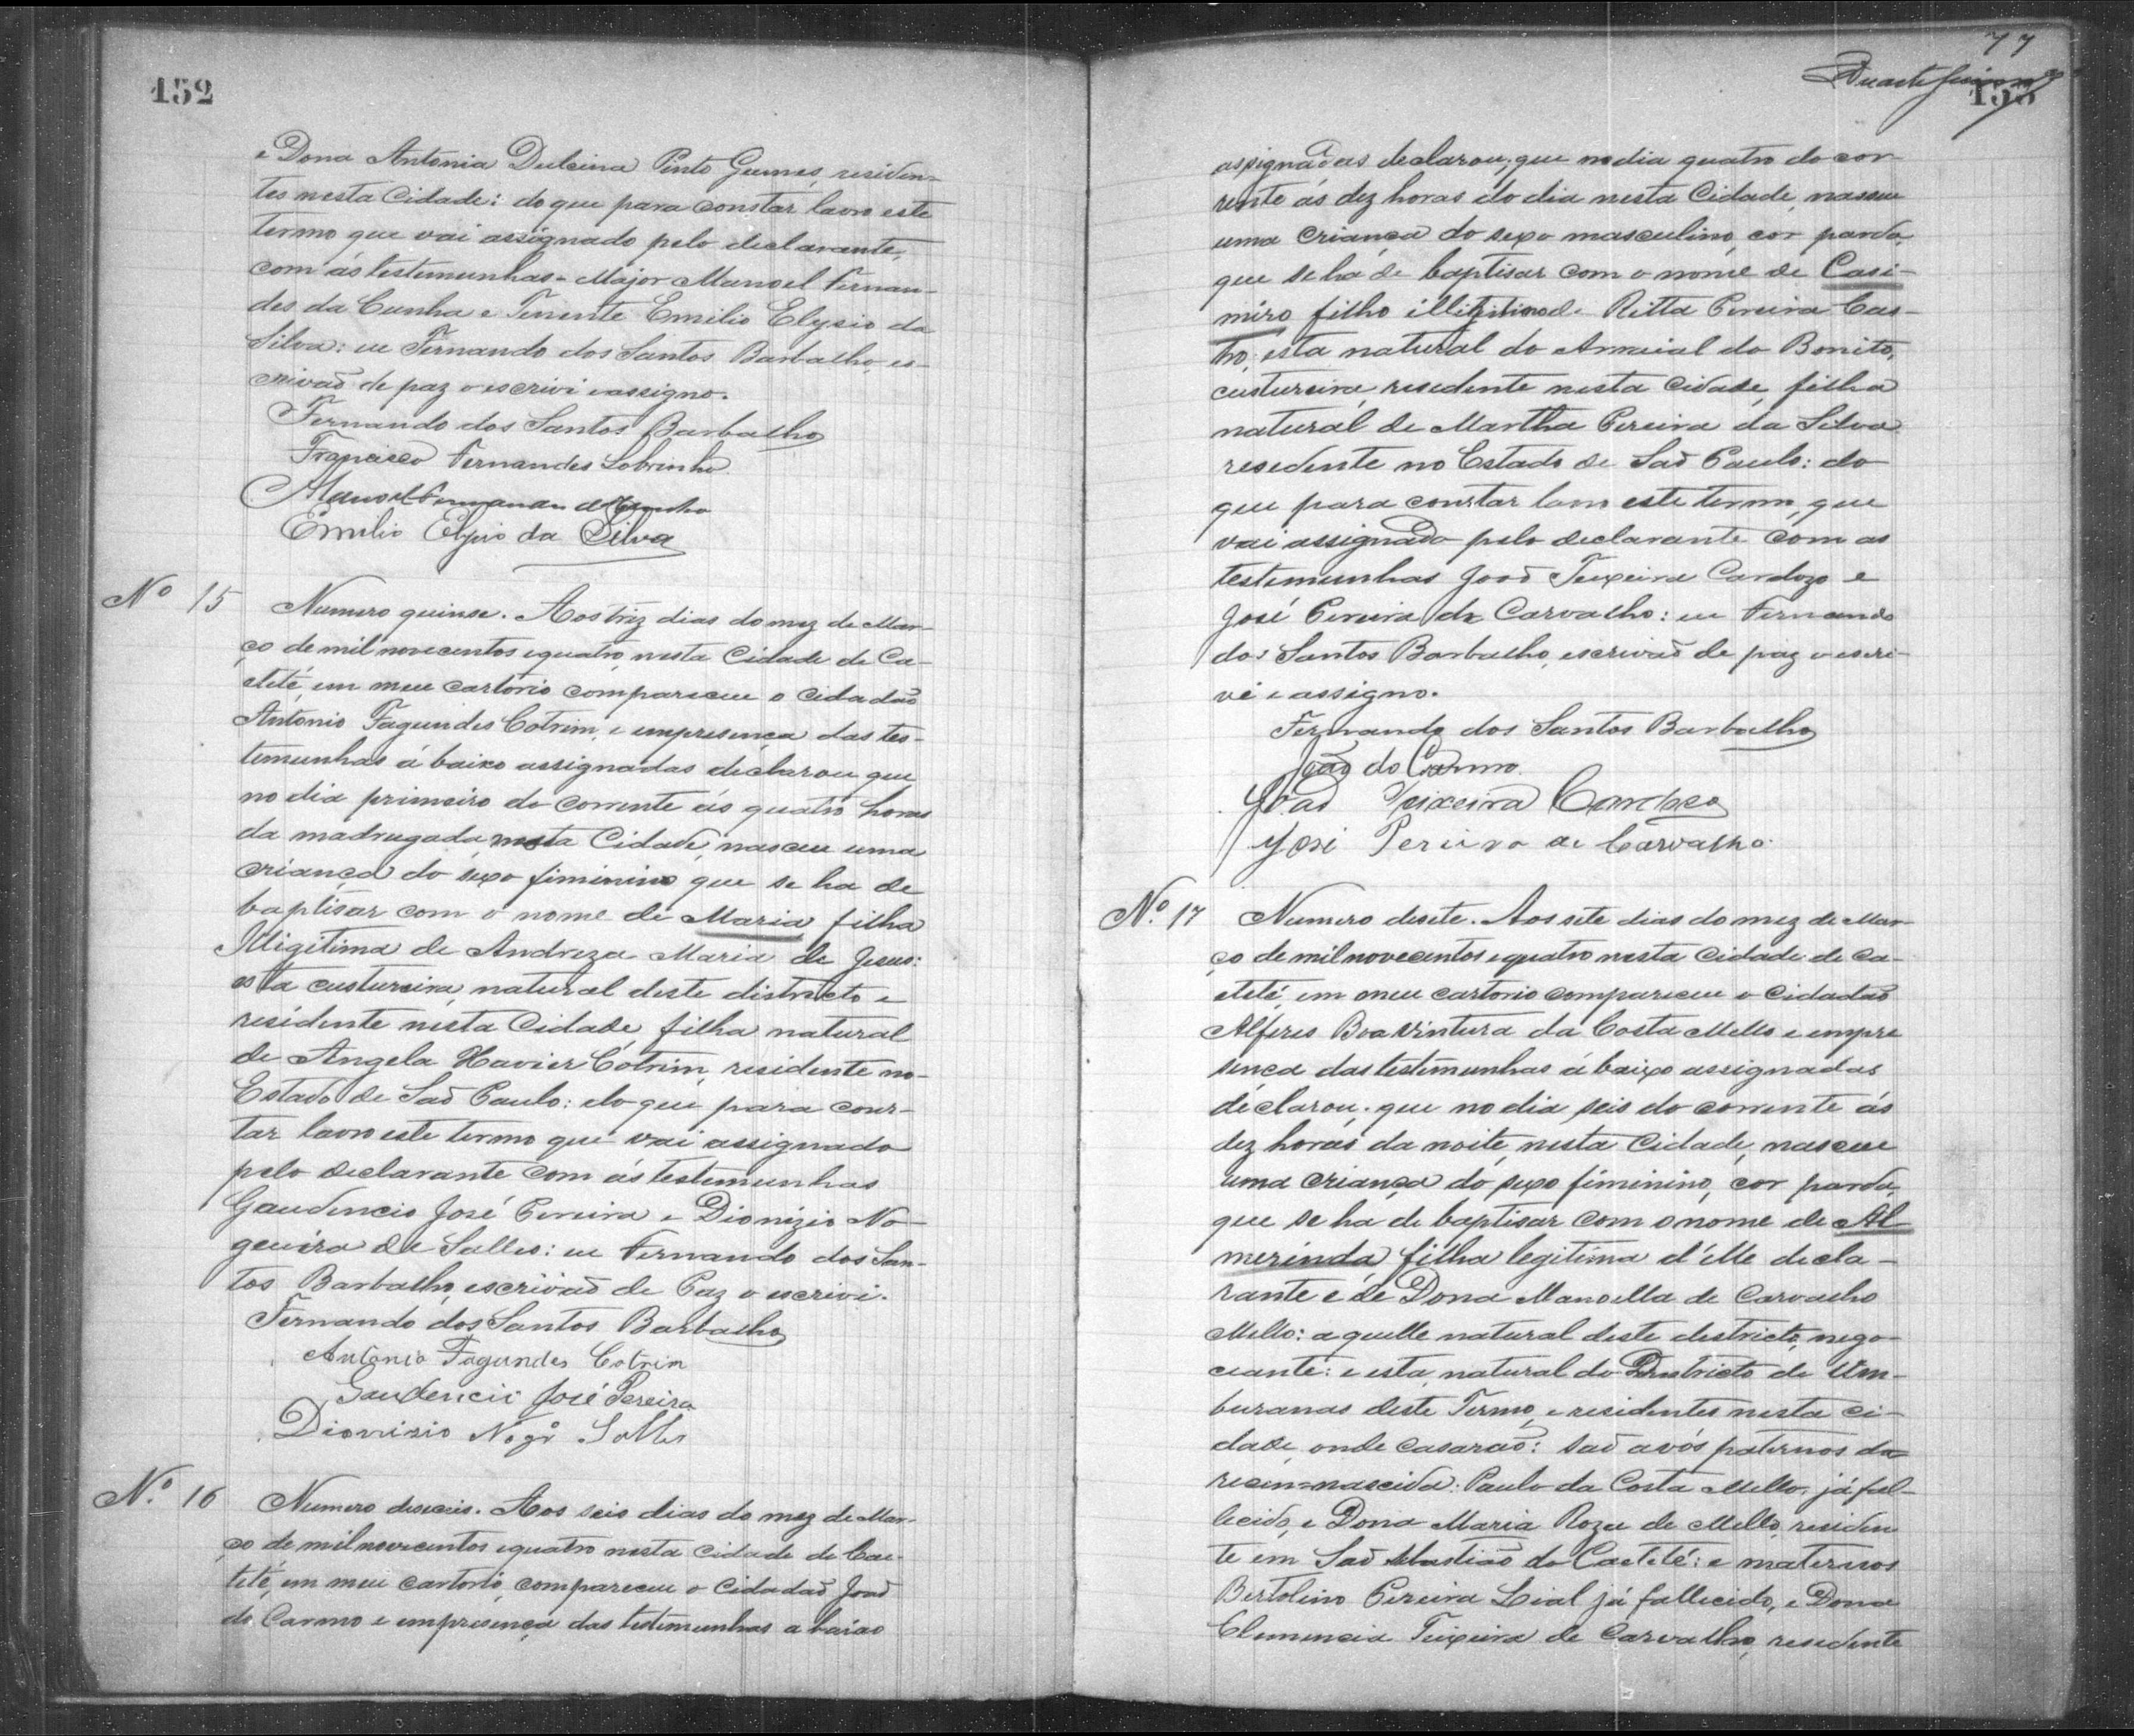 152
e Dona Antonia Dulcina Pinto Gumes, residen=
tes nesta Cidade: do que para constar lavro este
termo que vai assignado pelo declarante,
com ás testemunhas - Major Manoel Fernan-
des da Cunha e Tenente Emilio Elysio da
Silva: eu Fernando dos Santos Barbalho, es-
crivaõ de paz o escrivi e assigno.
Fernando dos Santos Barbalho
Francisco Fernandes Sobrinho
Manoel Fernandes da Cunha
Emilio Elysio da Silva
Nº 15
Numero quinse. Aos trez dias do mez de Mar-
ço de mil novecentos e quatro, nesta Cidade de Ca-
etité, em meu cartorio compareceu o Cidadaõ
Antonio Fagundes Cotrim, e empresença das tes-
temunhas á baixo assignadas declarou que
no dia primeiro do corrente ás quatro horas
da madrugada, nesta Cidade, nasceu uma
criança do sexo fiminino que se ha de
baptisar com o nome de Maria filha
Illigitima de Andreza Maria de Jesus:
esta custureira, natural deste districto e
residente nesta Cidade, filha natural
de Angela Xavier Cotrim, residente no-
Estado de Saõ Paulo: do que para cons-
tar lavro este termo que vai assignado
pelo declarante com ás testemunhas
Gaudencio José Pereira e Dionizio No-
gueira de Salles: eu Fernando dos San-
tos Barbalho, escrivaõ de Paz o escrivi.
Fernando dos Santos Barbalho
Antonio Fagundes Cotrim
Gaudencio José Pereira
Dionisio Nogrª Salles
N.º 16
Numero deseseis. Aos seis dias do mez de Mar-
ço de mil novecentos e quatro nesta Cidade de Cae-
tité, em meu Cartorio, compareceu o Cidadaõ Joaõ
do Carmo e empresença das testemunhas a baixo
77
Duarte
153
assignadas declarou, que no dia quatro do cor-
rente ás dez horas do dia nesta Cidade, nasceu
uma Criança do sexo masculino, cor parda,
que se ha de baptisar com o nome de Casi-
miro filho illigitimo de Ritta Pereira Cas-
tro, esta natural do Arraial do Bonito,
custureira, residente nesta Cidade, filha
natural de Martha Pereira da Silva
residente no Estado de Saõ Paulo: do
que para constar lavro este termo, que
vai assignado pelo declarante com as
testemunhas Joaõ Teixeira Cardozo e
José Pereira de Carvalho: eu Fernando
dos Santos Barbalho, escrivaõ de paz o escri-
vi e assigno.
Fernando dos Santos Barbalho
Joaõ do Carmo
Joaõ Teixeira Cardoso
José Pereira de Carvalho.
Nº. 17
Numero desete. Aos sete dias do mez de Mar-
ço de mil novecentos e quatro nesta Cidade de Ca-
etité, em meu cartorio compareceu o Cidadaõ
Alferes Boaventura da Costa Mello e empre
sença das testemunhas á baixo assignadas
declarou, que no dia seis do corrente ás
dez horas da noite, nesta Cidade, nasceu
uma criança do sexo fiminino, cor parda,
que se ha de baptisar com o nome de Al
merinda filha legitima d'elle decla-
rante e de Dona Manoella de Carvalho
Mello: aquelle natural deste destricto, nego-
ciante: e esta, natural do Destricto de Um-
buranas deste Termo, e residentes nesta ci-
dade, onde casaraõ: saõ avós paternos da
recem=nascida: Paulo da Costa Mello, já fal-
lecido, e Dona Maria Roza de Mello, residen
te em Saõ Sebastiaõ do Caetité: e maternos
Bertolino Pereira Leal já fallecido, e Dona
Clemencia Teixeira de Carvalho, residente